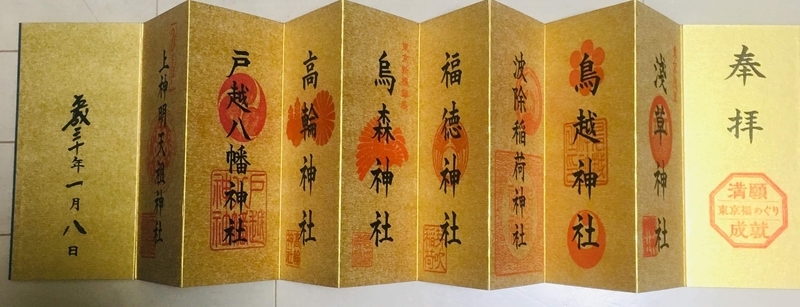 奉拝
満願
東京福めぐり
成就
浅草神社
鳥越神社
波除稲荷神社
福徳神社
烏森神社
高輪神社
戸越八幡神社
戸越
八幡
神社
上神明天祖神社
平成三十年一月八日